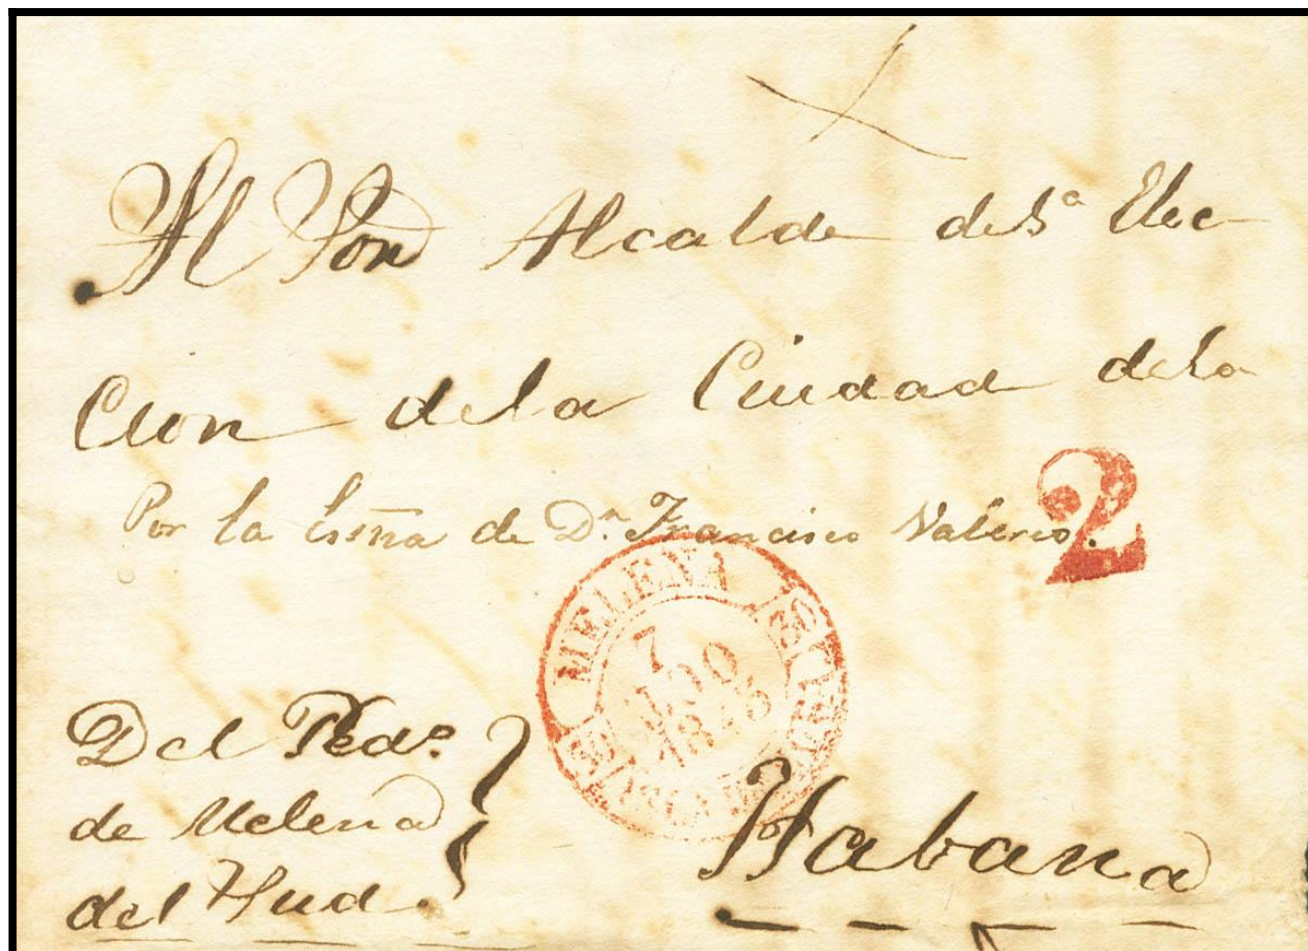 Al Sor Alcalde de 1ª Elec-
cion de la Ciudad de la
Por la Essna de Dn Francisco Valerio.
2
MELENA
7
JUO
1848
Del Pedo
de Melena
del Sud.
Habana